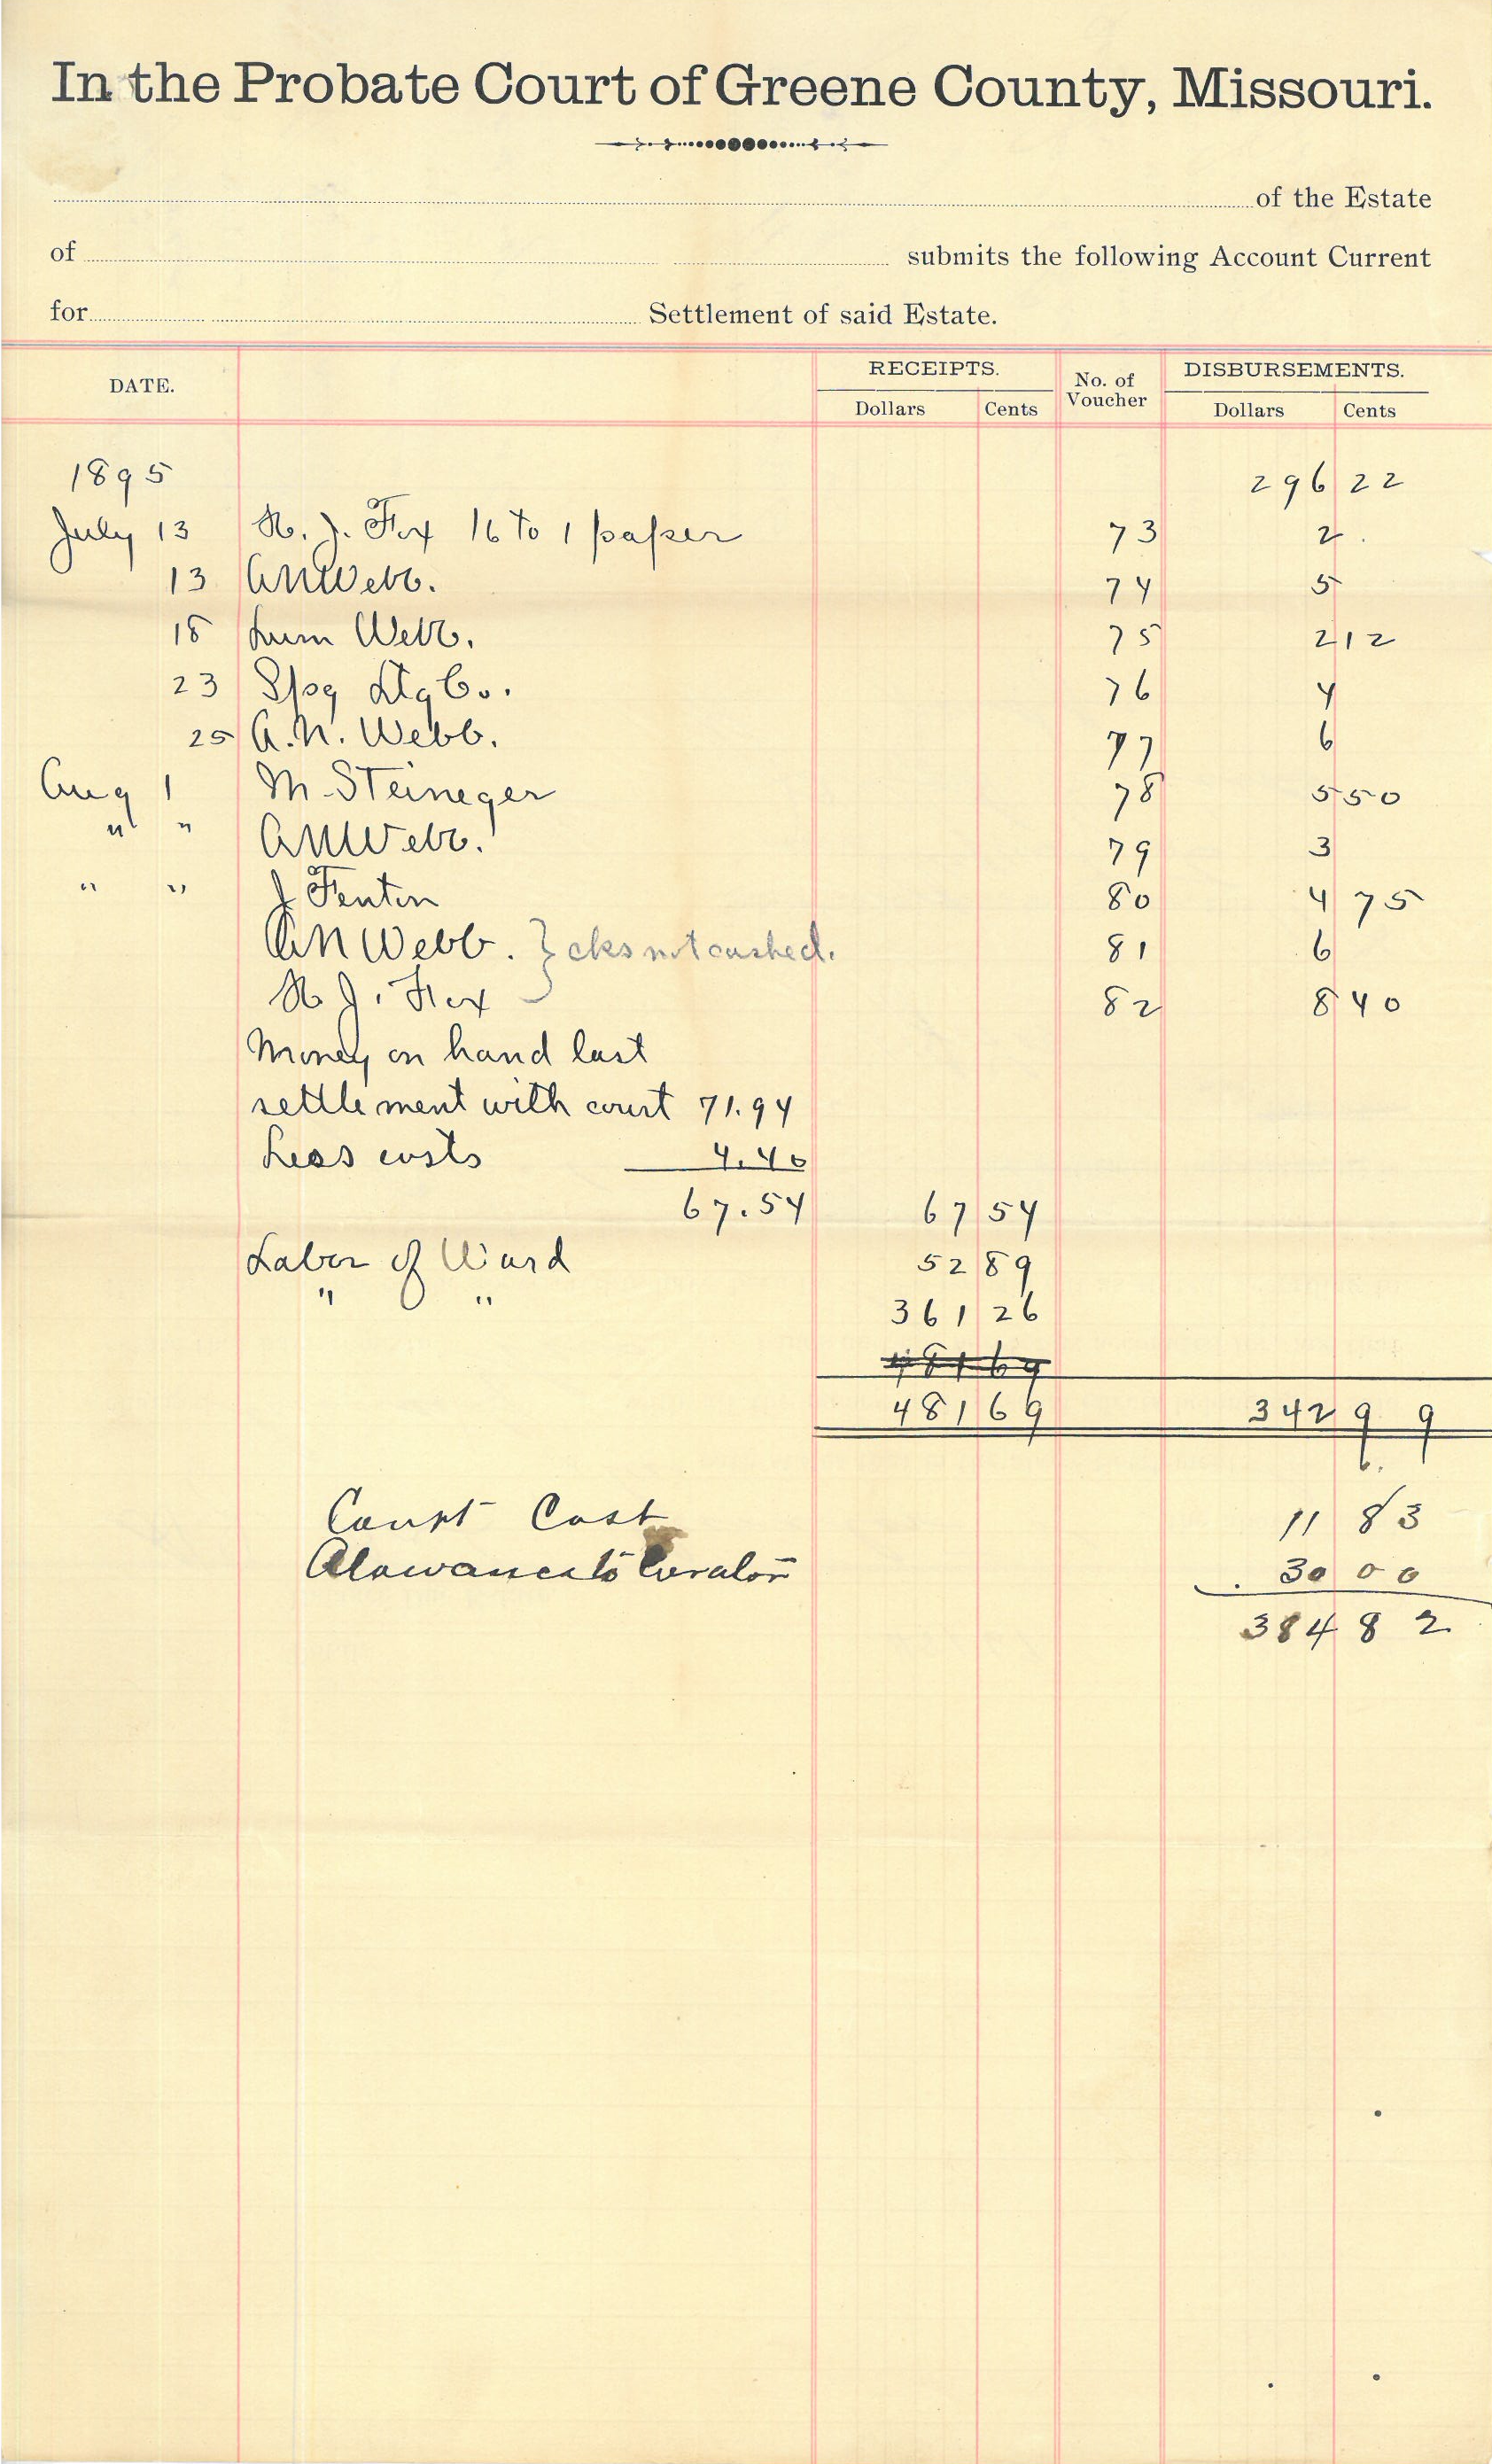 In the Probate Court of Greene County, Missouri.
of the Estate
of submits the following Account Current
for Settlement of said Estate.
DATE. RECEIPTS. No. of Voucher DISBURSEMENTS.
Dollars Cents Dollars Cents
1895 296 22
July 13 N. J. Fox 16 to 1 paper 73 2.
13 ANWebb. 74 5
18 Lum Webb. 75 2 12
23 Spg Ltg Co. 76 4
25 A.N. Webb. 77 6
Aug 1 M. Steineger 78 5 50
" " ANWebb. 79 3
" " J Fenton 80 4 75
AN Webb. } cks not cashed. 81 6
N J. Fox 82 8 40
Money on hand last
settlement with court 71.94
Less costs 4.40
67.54 67 54
Labor of Ward 52 89
" " 361 26
481 69
481 69 342 99
Court Cost 11 83
Alowance to Curator 30 00
384 82